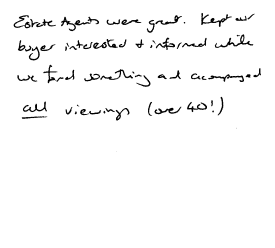 Estate Agents were great. Kept our
buyer interested + informed while
we found something and accompanied
all viewings (over 40!)